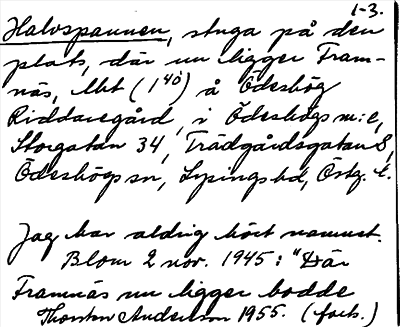 1-3.
Halvspannen, stuga på den
plats, där nu ligger Fram-
näs, lht (1⁴⁰) å Ödeshög
Riddaregård, i Ödeshögs m:e,
Storgatan 34, Trädgårdsgatan 8,
Ödeshögs sn, Lysings hd, Östg. l.
Jag har aldrig hört namnet.
Blom 2 nov. 1945: "Där
Framnäs nu ligger bodde
Thorsten Anderson 1955. (forts.)